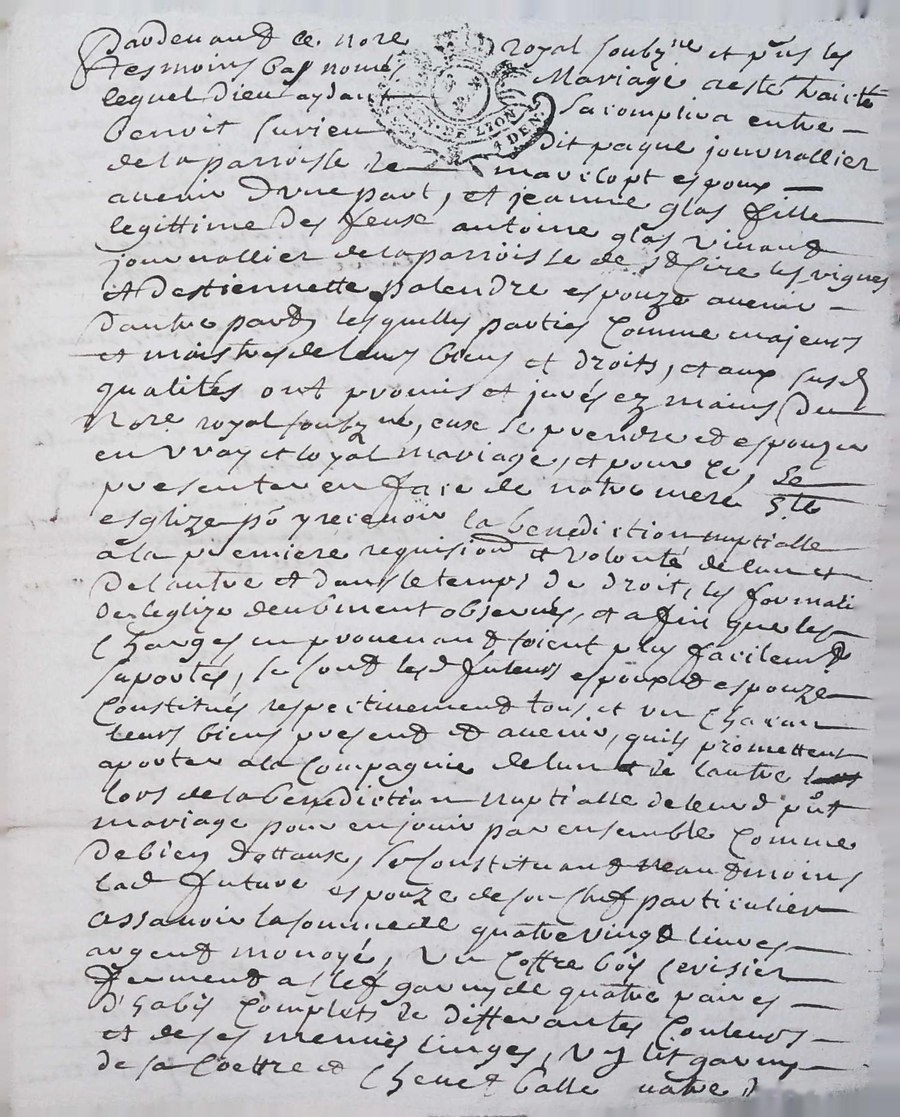 Pardevand ce nore royal soubzne et pns les
tesmoins bas només Mariage a esté traicté
lequel Dieu aydant sacomplira entre
GEN. DE LYON
4 DEN.
Benoit Surieu dit paque journallier
de la parroisse de espoux
avenir d'vne part, et jeanne glas fille
legittime des feuse antoine glas vivand
journallier de la parroisse de st Sire les vignes
et d'estiennette palendre espouze avenir
d'autre pard, lesquells parties comme majeurs
et maistres de leurs biens et droits, et aux susd
qualités ont promis et jurés ez mains du
Nore royal soubzné, eux se prendre et espouzer
en vray et loyal mariage, et pour ce, se
presenter en face de notre mere ste
esglize po y recevoir la benediction nuptialle
a la premiere requision et volonté de lun et
de lautre et dans le temps de droit, les formali
de leglize deubment observés, et afin que les
charges en provenand soient plus facilemt
suportés, se sond lesd futeurs espoux et espouze
constitués respectivement tous et vn chacun
leurs biens presend et avenir, quils promettent
aporter a la compagnie de lun et de lautre
lors de la benediction nuptialle de leurd pnt
mariage pour en jouir par ensemble comme
de biens dottaux, se constituand neandmoins
lad future espouze de son chef particulier
assavoir la somme de quatre vingd livres
argend monoyé, vn coffre bois cerisier
fermend a clef garny de quatre paires
d'habis complets de differantes couleurs
et de ses menus linges, vn lit garny
de sa coettre et chevet balle